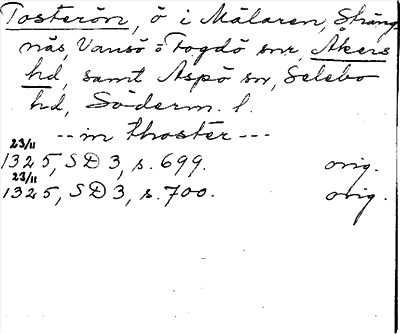 Tosterön, ö i Mälaren, Sträng-
näs, Vansö o Fogdö snr, Åkers
hd, samt Aspö sn, Selebo
hd, Söderm. l.
-- in thoster ---
23/11
1325, SD 3, s. 699. orig.
23/11
1325, SD 3, s. 700. orig.